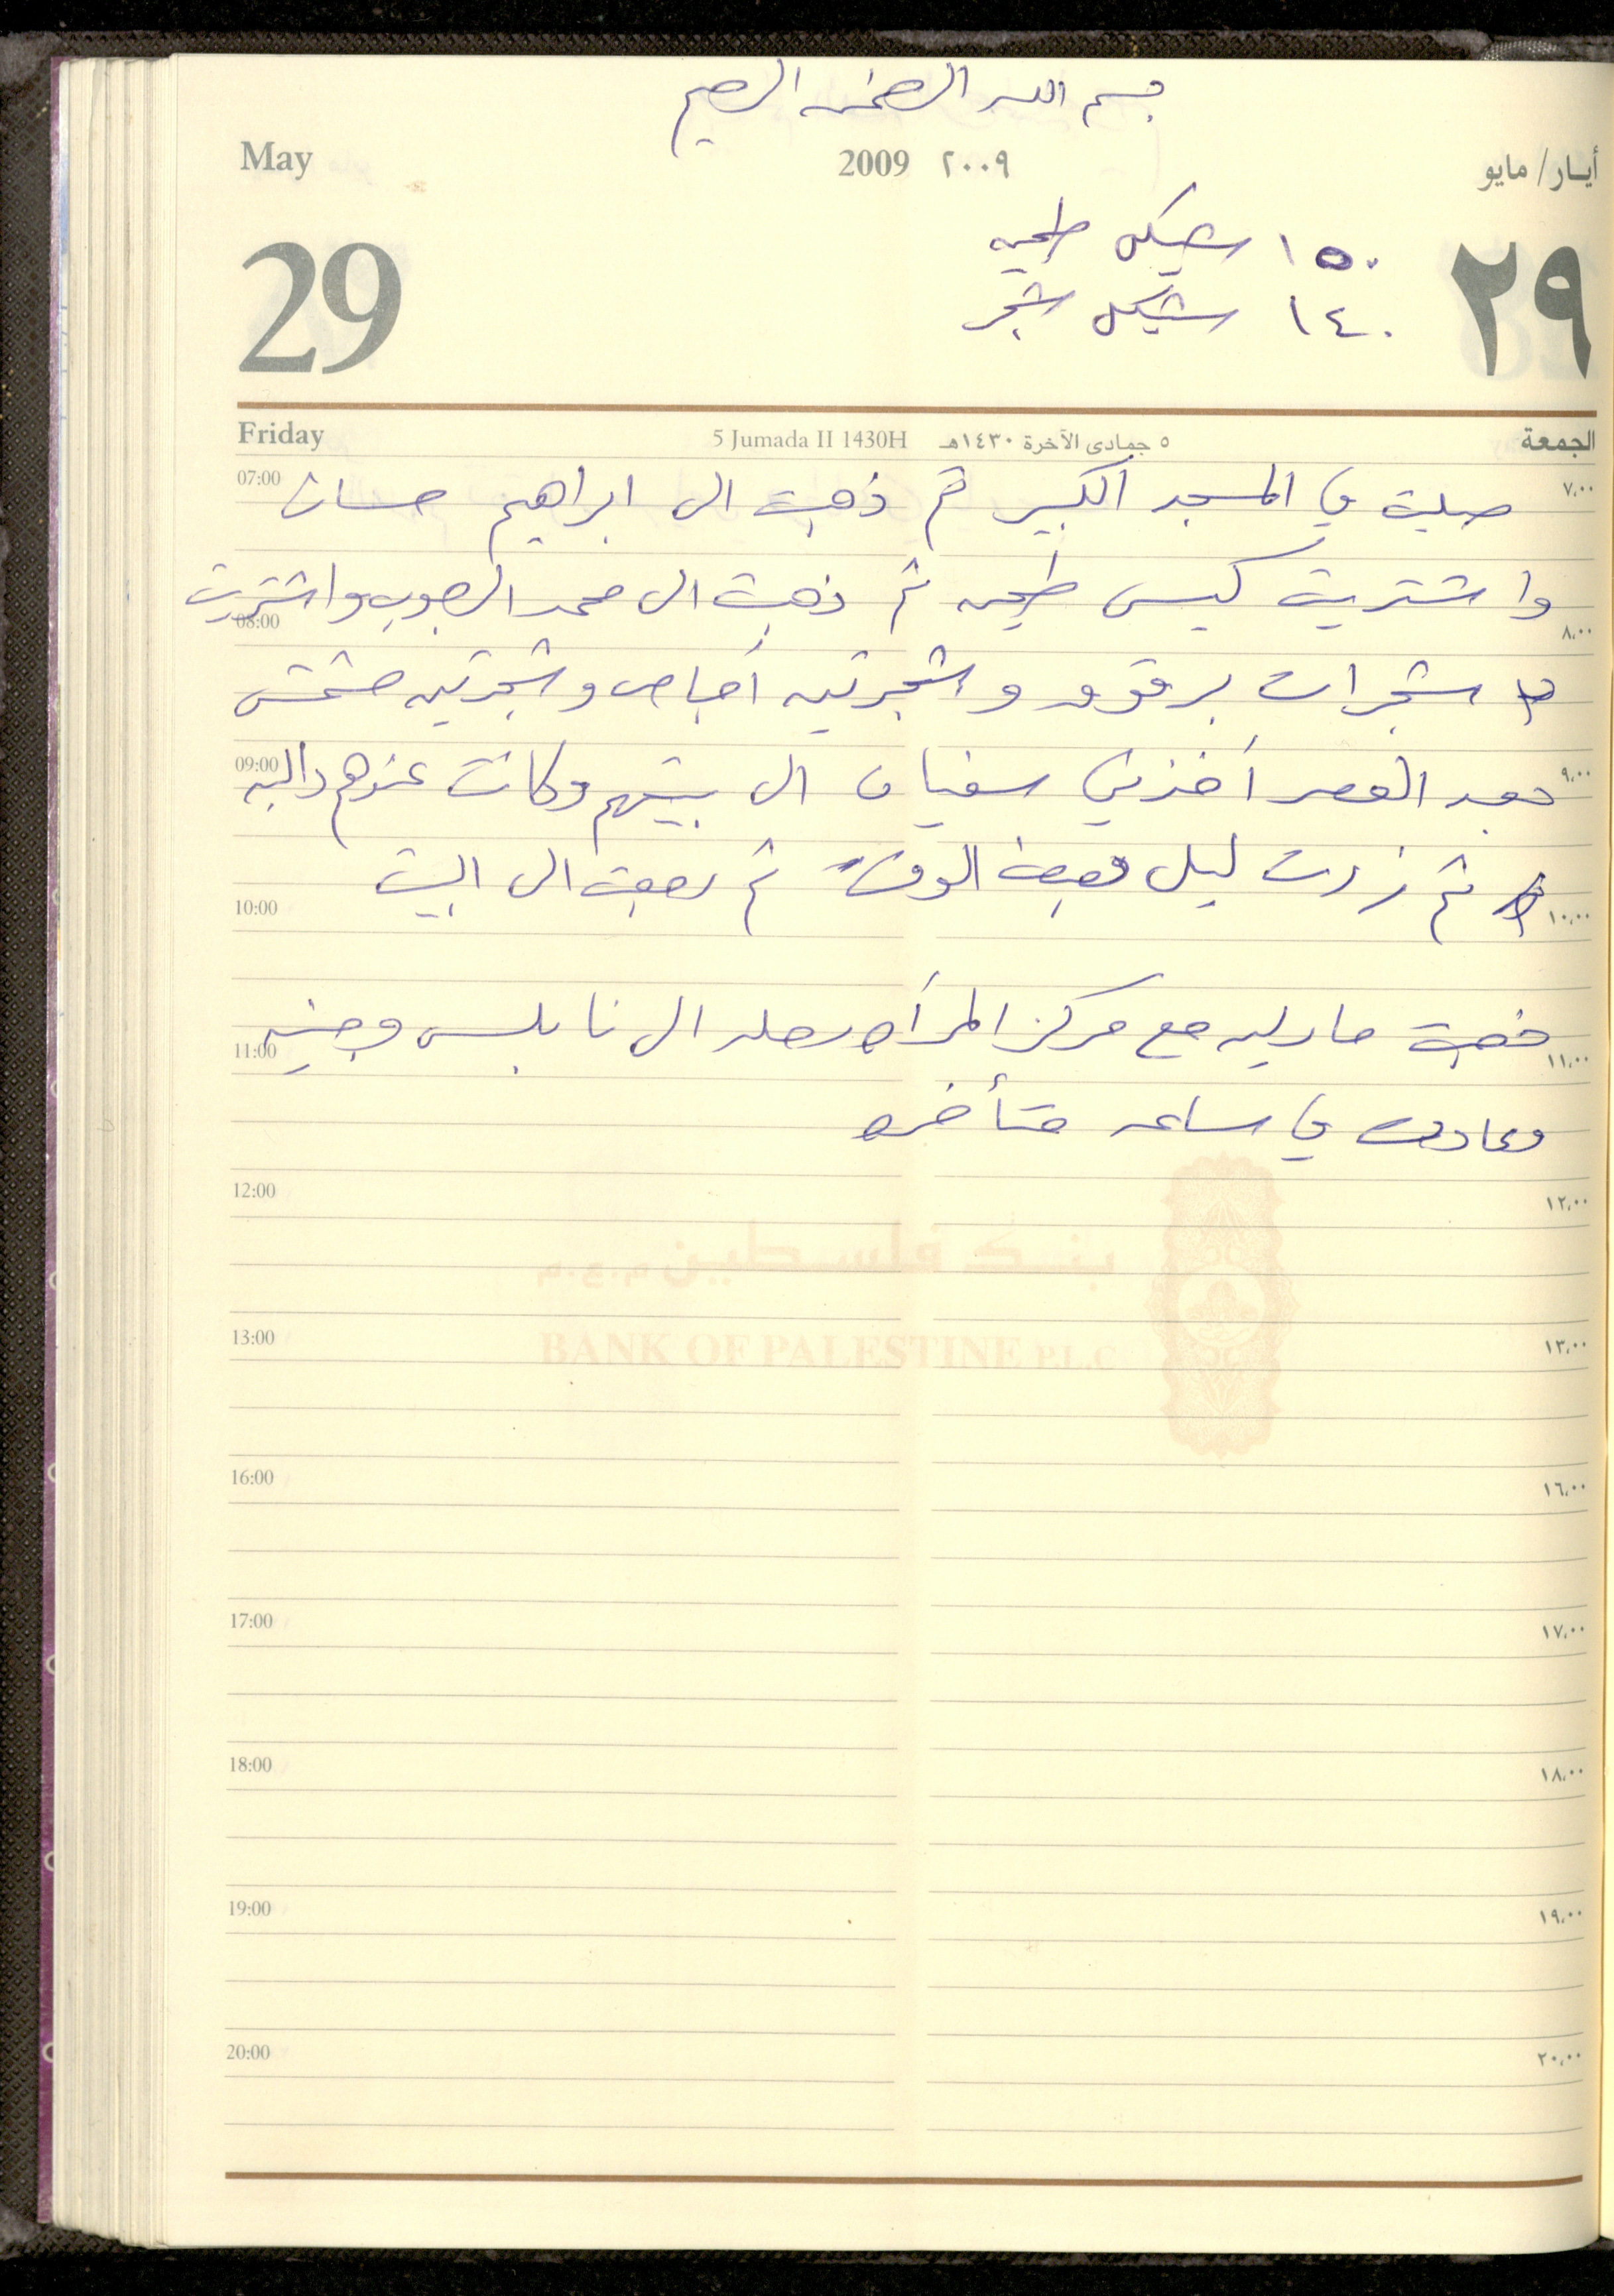 بسم الله الرحمن الرحيم
May 2009 ٢٠٠٩ أيـار/ مايو
29 ٢٩
١٥٠ شيكل طحين
١٤٠ شيكل شجر
Friday 5 Jumada II 1430H ٥ جمادى الآخرة ١٤٣٠هـ الجمعة
07:00 صليت في المسجد الكبير ثم ذهبت الى ابراهيم حسان ٧,٠٠
واشتريت كيس طحين ثم ذهبت الى محمد واشتريت
08:00 ٨,٠٠
شجرات برقوق وشجرتين أجاص وشجرتين مشمش
09:00 بعد العصر أخذني سفيان الى بيتهم وكانت عندهم داليه ٩,٠٠
ثم زرت ليلى الوقت ثم رجعت الى البيت
10:00 ١٠,٠٠
ذهبت مارلين مع مركز المرأه رحله الى نابلس وجنين
11:00 ١١,٠٠
وعادت في ساعه متأخره
12:00 ١٢,٠٠
بنك فلسطين م.ع.م
13:00 ١٣,٠٠
BANK OF PALESTINE P.L.C
16:00 ١٦,٠٠
17:00 ١٧,٠٠
18:00 ١٨,٠٠
19:00 ١٩,٠٠
20:00 ٢٠,٠٠